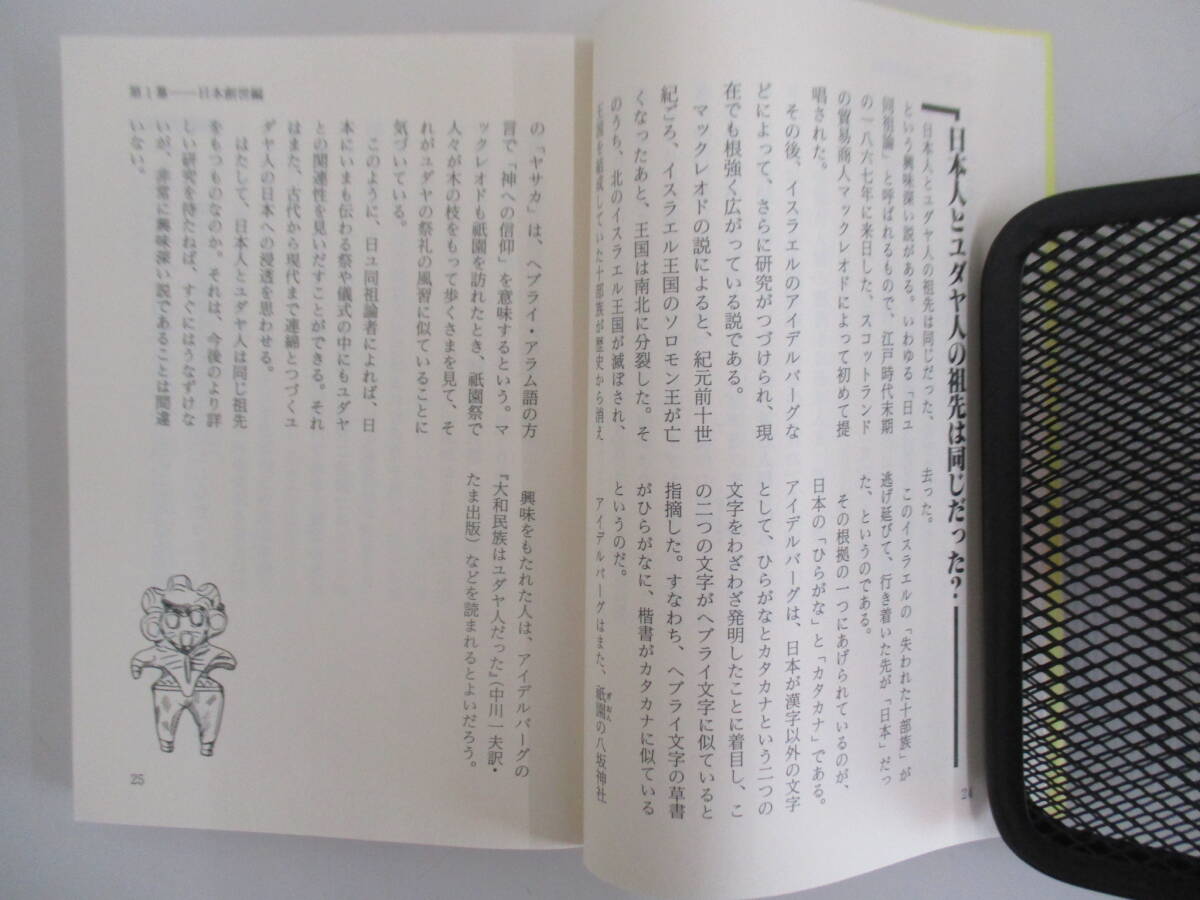 日本人とユダヤ人の祖先は同じだった?
日本人とユダヤ人の祖先は同じだった、
という興味深い説がある。いわゆる「日ユ
同祖論」と呼ばれるもので、江戸時代末期
の一八六七年に来日した、スコットランド
の貿易商人マックレオドによって初めて提
唱された。
その後、イスラエルのアイデルバーグな
どによって、さらに研究がつづけられ、現
在でも根強く広がっている説である。
マックレオドの説によると、紀元前十世
紀ごろ、イスラエル王国のソロモン王が亡
くなったあと、王国は南北に分裂した。そ
のうち、北のイスラエル王国が滅ぼされ、
王国を結成していた十部族が歴史から消え
去った。
このイスラエルの「失われた十部族」が
逃げ延びて、行き着いた先が「日本」だっ
た、というのである。
その根拠の一つにあげられているのが、
日本の「ひらがな」と「カタカナ」である。
アイデルバーグは、日本が漢字以外の文字
として、ひらがなとカタカナという二つの
文字をわざわざ発明したことに着目し、こ
の二つの文字がヘブライ文字に似ていると
指摘した。すなわち、ヘブライ文字の草書
がひらがなに、楷書がカタカナに似ている
というのだ。
アイデルバーグはまた、祇園の八坂神社
ぎおん
24
第1幕——日本創世編
の「ヤサカ」は、ヘブライ・アラム語の方
言で「神への信仰」を意味するという。マ
ックレオドも祇園を訪れたとき、祇園祭で
人々が木の枝をもって歩くさまを見て、そ
れがユダヤの祭礼の風習に似ていることに
気づいている。
このように、日ユ同祖論者によれば、日
本にいまも伝わる祭や儀式の中にもユダヤ
との関連性を見いだすことができる。それ
はまた、古代から現代まで連綿とつづくユ
ダヤ人の日本への浸透を思わせる。
はたして、日本人とユダヤ人は同じ祖先
をもつものなのか。それは、今後のより詳
しい研究を待たねば、すぐにはうなずけな
いが、非常に興味深い説であることは間違
いない。
興味をもたれた人は、アイデルバーグの
『大和民族はユダヤ人だった』(中川一夫訳・
たま出版)などを読まれるとよいだろう。
25